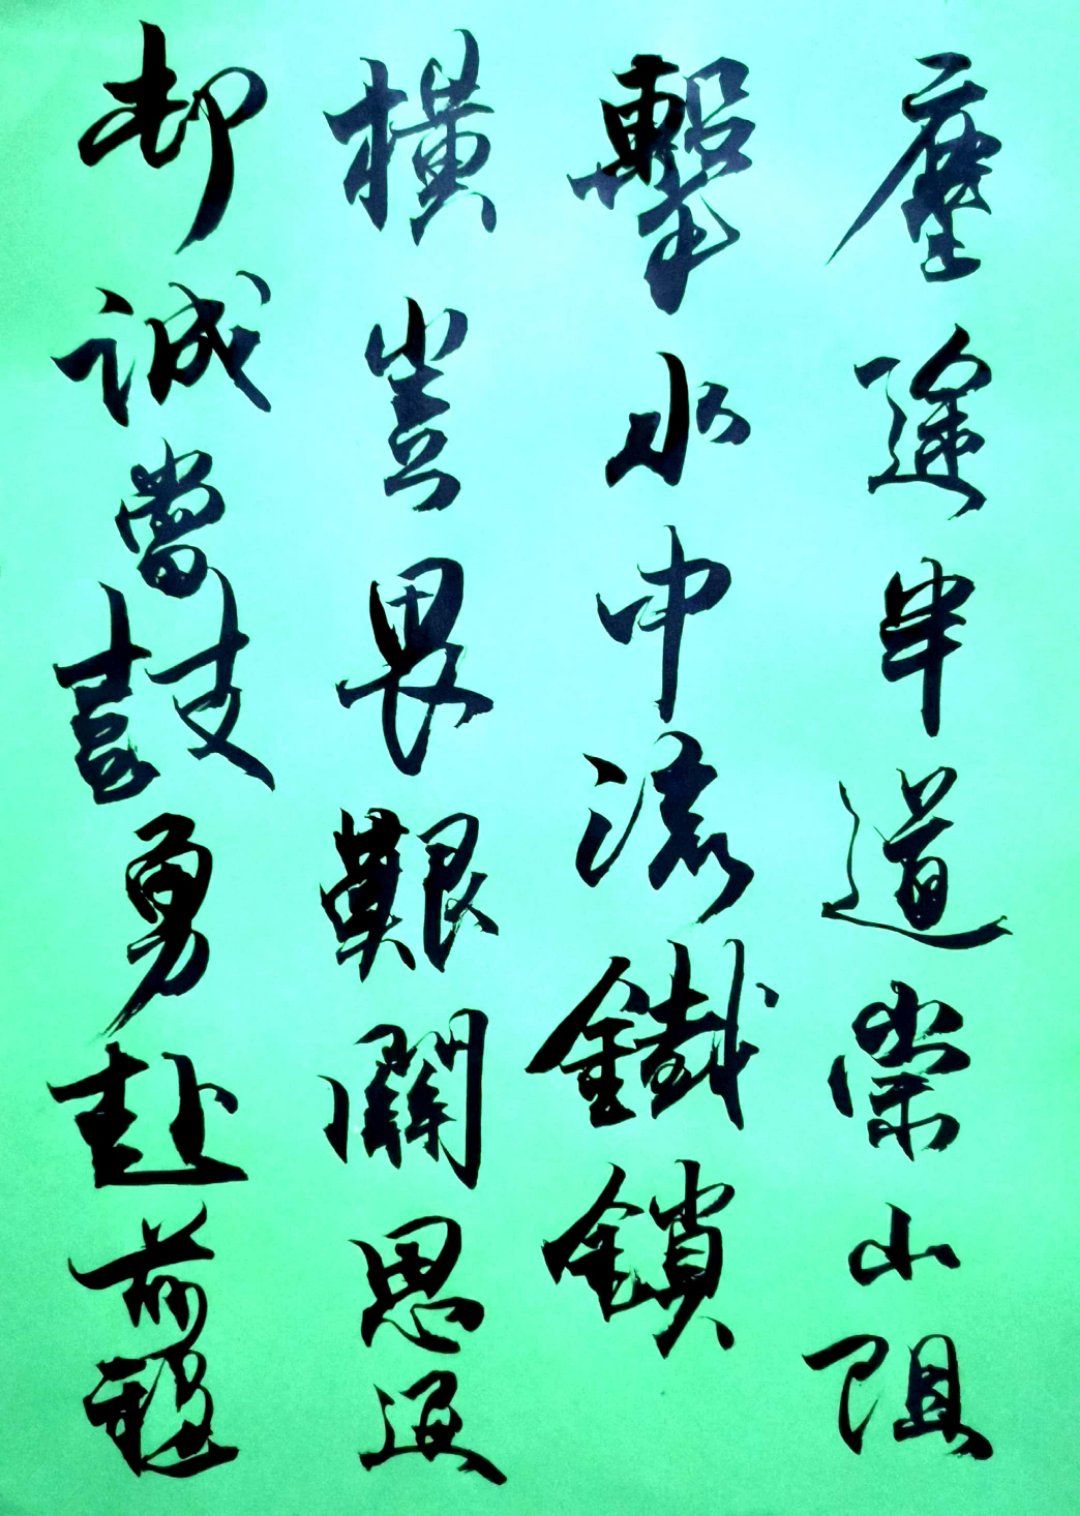 塵途半道崇山阻
擊水中流鐵鎖
橫豈畏艱關思退
却誠當鼓勇赴前程